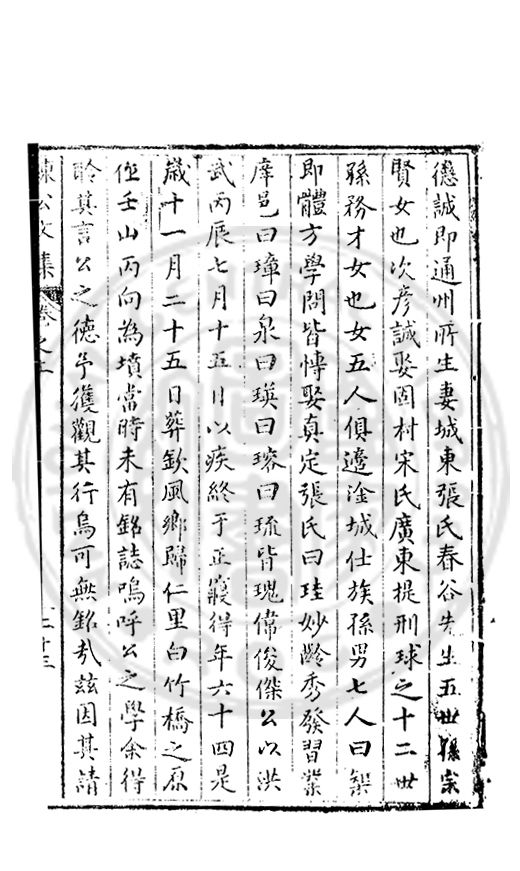 德誠即通州所生妻城東張氏春谷先生五世孫宗
賢女也次彥誠娶固村宋氏廣東提刑球之十二世
孫務才女也女五人俱適淦城仕族孫男七人曰
即體方學問皆博娶真定張氏曰珪妙齡秀發習業
庠邑曰璋曰泉曰瑛曰瑢曰琉皆瑰偉俊傑公以洪
武丙辰七月十五日以疾終于正寢得年六十四是
歲十一月二十五日葬欽風鄉歸仁里白竹橋之原
作壬山丙向為墳當時未有銘誌嗚呼公之學余得
聆其言公之德予獲觀其行烏可無銘哉茲因其請
陳公文集 卷之二
二十三